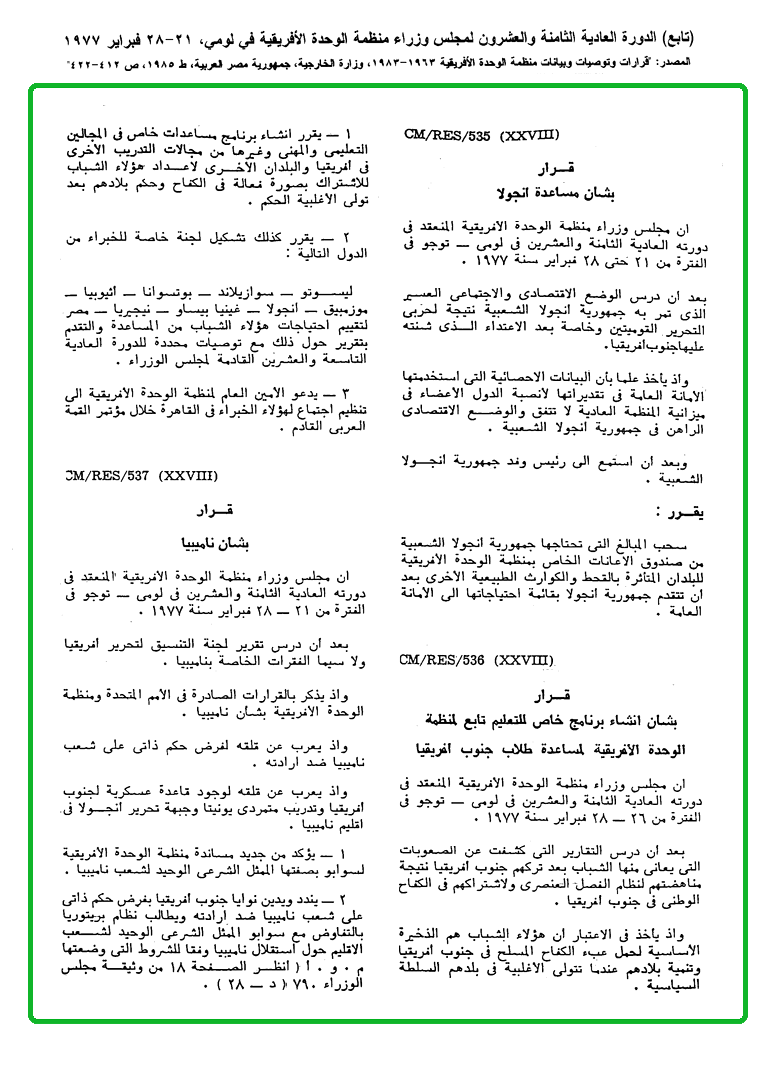 (تابع) الدورة العادية الثامنة والعشرون لمجلس وزراء منظمة الوحدة الأفريقية في لومي، ٢١-٢٨ فبراير ١٩٧٧
المصدر: "قرارات وتوصيات وبيانات منظمة الوحدة الأفريقية ١٩٦٣-١٩٨٣، وزارة الخارجية، جمهورية مصر العربية، ط ١٩٨٥، ص ٤١٢-٤٢٢"
CM/RES/535 (XXVIII)
قـــرار
بشأن مساعدة انجولا
ان مجلس وزراء منظمة الوحدة الافريقية المنعقد فى
دورته العادية الثامنة والعشرين فى لومى — توجو فى
الفترة من ٢١ حتى ٢٨ فبراير سنة ١٩٧٧ .
بعد أن درس الوضع الاقتصادى والاجتماعى العسير
الذى تمر به جمهورية انجولا الشعبية نتيجة لحربى
التحرير القوميتين وخاصة بعد الاعتداء الـــذى شنته
عليها جنوب أفريقيا.
واذ يأخذ علما بأن البيانات الاحصائية التى استخدمتها
الامانة العامة فى تقديراتها لانصبة الدول الاعضاء فى
ميزانية المنظمة العادية لا تتفق والوضــع الاقتصادى
الراهن فى جمهورية انجولا الشعبية .
وبعد أن استمع الى رئيس وفد جمهورية انجــولا
الشعبية .
يقــرر :
سحب المبالغ التى تحتاجها جمهورية أنجولا الشعبية
من صندوق الاعانات الخاص بمنظمة الوحدة الأفريقية
للبلدان المتأثرة بالقحط والكوارث الطبيعية الأخرى بعد
أن تتقدم جمهورية أنجولا بقائمة احتياجاتها الى الأمانة
العامة .
CM/RES/536 (XXVIII)
قـــرار
بشأن انشاء برنامج خاص للتعليم تابع لمنظمة
الوحدة الأفريقية لمساعدة طلاب جنوب أفريقيا
ان مجلس وزراء منظمة الوحدة الأفريقية المنعقد فى
دورته العادية الثامنة والعشرين فى لومى — توجو فى
الفترة من ٢٦ — ٢٨ فبراير سنة ١٩٧٧ .
بعد أن درس التقارير التى كشفت عن الصعوبات
التى يعانى منها الشباب بعد تركهم جنوب أفريقيا نتيجة
مناهضتهم لنظام الفصل العنصرى ولاشتراكهم فى الكفاح
الوطنى فى جنوب أفريقيا .
واذ يأخذ فى الاعتبار أن هؤلاء الشباب هم الذخيرة
الأساسية لحمل عبء الكفاح المسلح فى جنوب أفريقيا
وتنمية بلادهم عندما تتولى الأغلبية فى بلدهم السلطة
السياسية .
١ — يقرر انشاء برنامج مساعدات خاص فى المجالين
التعليمى والمهنى وغيرها من مجالات التدريب الأخرى
فى أفريقيا والبلدان الأخــرى لاعــداد هؤلاء الشباب
للاشتراك بصورة فعالة فى الكفاح وحكم بلادهم بعد
تولى الأغلبية الحكم .
٢ — يقرر كذلك تشكيل لجنة خاصة للخبراء من
الدول التالية :
ليســوتو — سوازيلاند — بوتسوانا — أثيوبيا —
موزمبيق — أنجولا — غينيا بيساو — نيجيريا — مصر
لتقييم احتياجات هؤلاء الشباب من المساعدة والتقدم
بتقرير حول ذلك مع توصيات محددة للدورة العادية
التاسعة والعشرين القادمة لمجلس الوزراء .
٣ — يدعو الأمين العام لمنظمة الوحدة الأفريقية الى
تنظيم اجتماع لهؤلاء الخبراء فى القاهرة خلال مؤتمر القمة
العربى القادم .
CM/RES/537 (XXVIII)
قـــرار
بشأن ناميبيا
ان مجلس وزراء منظمة الوحدة الأفريقية المنعقد فى
دورته العادية الثامنة والعشرين فى لومى — توجو فى
الفترة من ٢١ — ٢٨ فبراير سنة ١٩٧٧ .
بعد أن درس تقرير لجنة التنسيق لتحرير أفريقيا
ولا سيما الفقرات الخاصة بناميبيا .
واذ يذكر بالقرارات الصادرة فى الأمم المتحدة ومنظمة
الوحدة الأفريقية بشأن ناميبيا .
واذ يعرب عن قلقه لفرض حكم ذاتى على شعب
ناميبيا ضد ارادته .
واذ يعرب عن قلقه لوجود قاعدة عسكرية لجنوب
أفريقيا وتدريب متمردى يونيتا وجبهة تحرير أنجــولا فى
اقليم ناميبيا .
١ — يؤكد من جديد مساندة منظمة الوحدة الأفريقية
لسوابو بصفتها الممثل الشرعى الوحيد لشعب ناميبيا .
٢ — يندد ويدين نوايا جنوب أفريقيا بفرض حكم ذاتى
على شعب ناميبيا ضد ارادته ويطالب نظام بريتوريا
بالتفاوض مع سوابو الممثل الشرعى الوحيد لشــعب
الاقليم حول استقلال ناميبيا وفقا للشروط التى وضعتها
م . و . أ ( أنظر الصــفحة ١٨ من وثيقــة مجلس
الوزراء ٧٩٠ ( د — ٢٨ ) .